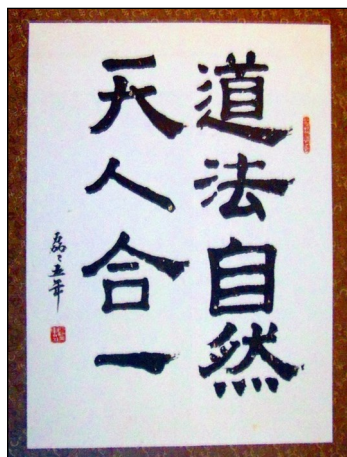 道法自然
天人合一